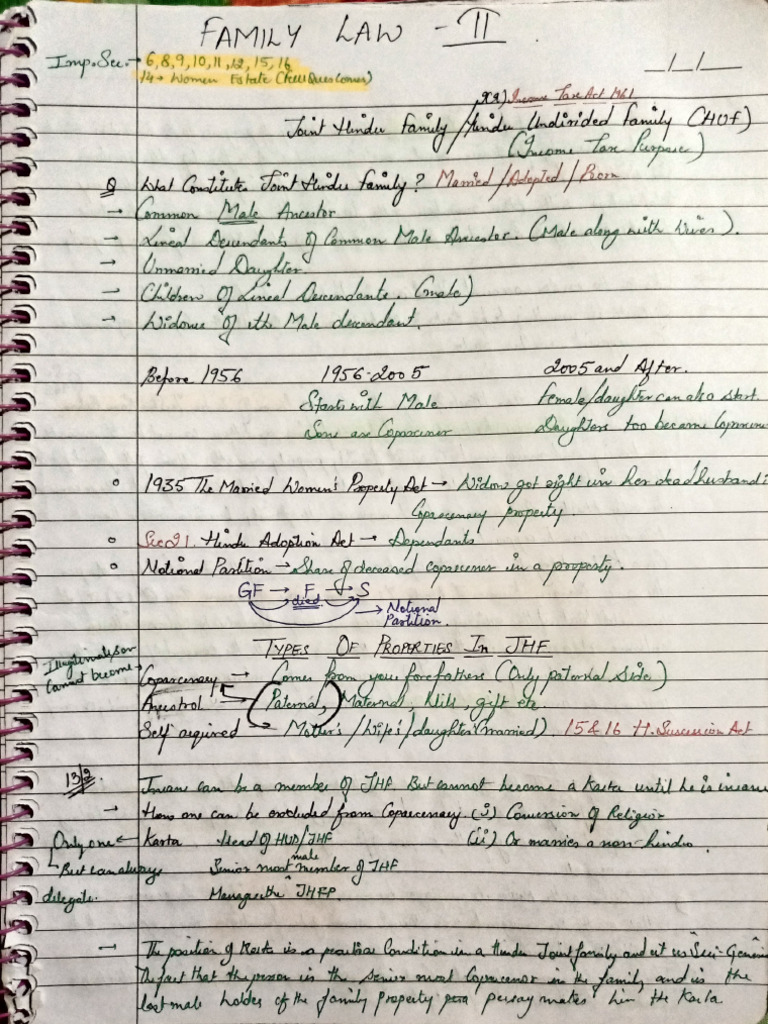 FAMILY LAW - II
Imp. Sec. → 6, 8, 9, 10, 11, 12, 15, 16
14 → Women Estate (New Questions)
__/__/__
Income Tax Act 1961
Joint Hindu Family / Hindu Undivided Family (HUF)
(Income Tax Purpose)
Q What Constitutes Joint Hindu Family? Married / Adopted / Born
→ Common Male Ancestor
→ Lineal Decendants of Common Male Ancestor. (Male along with Wives).
→ Unmarried Daughter.
→ Children of Lineal Descendants. (male)
→ Widows of the Male descendant.
Before 1956 1956-2005 2005 and After.
Starts with Male Female/daughter can also start.
Sons are Coparcener Daughters too became
1935 The Married Women's Property Act → Widow got right in her dead
Coparcenary property.
Sec 21. Hindu Adoption Act → Dependants
Notional Partition → Share of deceased coparcener in a property.
GF → F → S
died
→ Notional
Partition.
TYPES OF PROPERTIES IN JHF
Illegitimate son
cannot become →
Coparcenary → Comes from your forefathers (Only paternal side)
Ancestral → Paternal, Maternal, Wills, gift etc.
Self aquired → Mother's / Wife's / daughter (married). 15 & 16 H. Succession Act
13/2
Insane can be a member of JHF But cannot become a Karta until he is insane
→ How one can be excluded from Coparcenary (i) Conversion of Religion
Only one ← Karta Head of HUF/JHF (ii) Or marries a non-hindu.
But can always Senior most male member of JHF
delegate. Manages the JHFP
→ The position of Karta is a peculiar Condition in a Hindu Joint family and it is "Sui-Generis"
The fact that the person is the senior most Coparcenor in the family and is the
last male holder of the family Property makes him the Karta